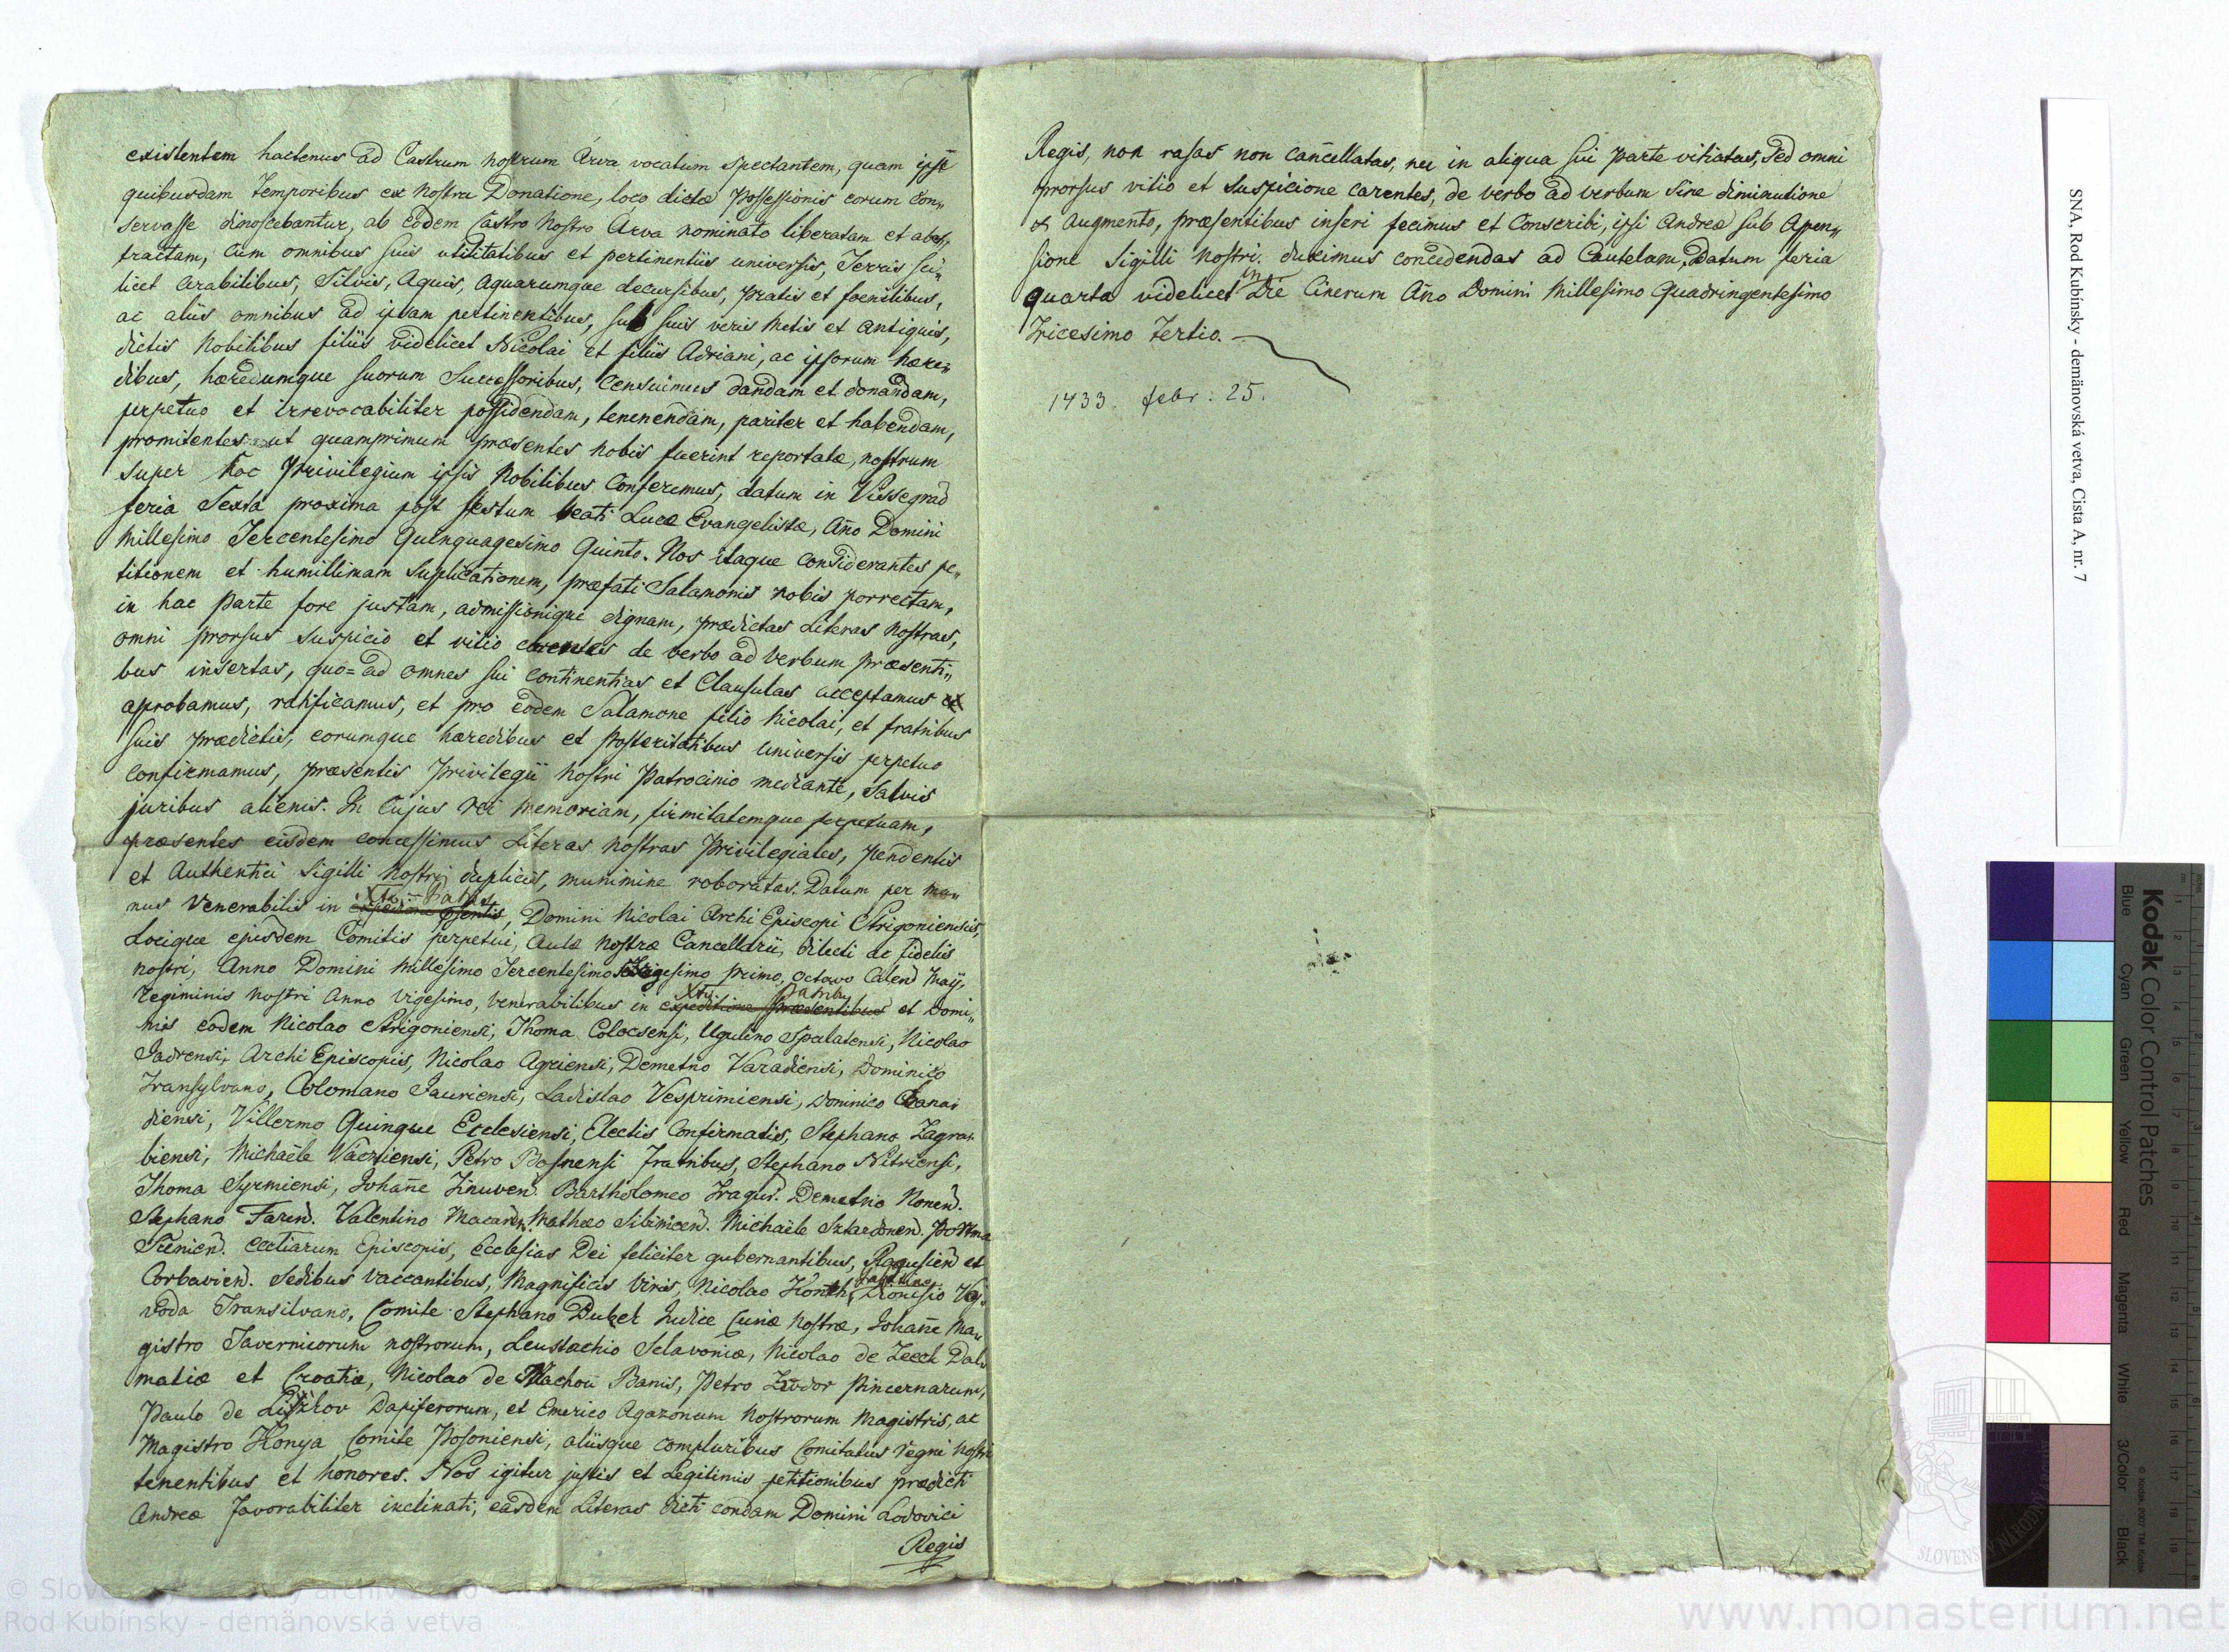 existentem hactenus ad Castrum nostrum Arva vocatum spectantem, quam ipsi
quibusdam temporibus ex nostra Donatione, loco dictae Possessionis eorum con„
servasse dinoscebantur, ab eodem Castro Nostro Arva nominato liberatam et abs„
tractam, cum omnibus suis utilitatibus et pertinentiis universis, Terris sci„
licet arabilibus, Silvis, Aquis, aquarumque decursibus, pratis et foenilibus,
ac aliis omnibus ad ipsam pertinentibus, sub suis veris Metis et antiquis,
dictis Nobilibus filiis videlicet Nicolai et filiis Adriani, ac ipsorum haere„
dibus, haeredumque suorum Successoribus, Censuimus dandam et donandam,
perpetuo et irrevocabiliter possidendam, tenenendam, pariter et habendam,
promitentes ut quamprimum praesentes nobis fuerint reportatae, nostrum
super hoc Privilegium ipsis Nobilibus Conferemus, datum in Vissegrad
feria Sexta proxima post festum beati Lucae Evangelistae, Ano Domini
Millesimo Tercentesimo Quinquagesimo Quinto. Nos itaque considerantes pe„
titionem et humillimam suplicationem, praefati Salamonis nobis porrectam,
in hac parte fore justam, admissionique dignam, praedictas Literas nostras,
omni prorsus suspicio et vitio carentes de verbo ad verbum praesenti„
bus insertas, quo=ad omnes sui continentias et Clausulas acceptamus et
aprobamus, ratificamus, et pro eodem Salamone filio Nicolai, et fratribus
suis praedictis, eorumque haeredibus et posteritatibus universis perpetuo
confirmamus, praesentis Privilegii nostri Patrocinio mediante, Salvis
juribus alienis. In cujus rei memoriam, firmitatemque perpetuam,
praesentes eisdem concessimus Literas nostras Privilegiales, pendentis
et Authentici Sigilli nostri duplicis, munimine roboratas. Datum per ma„
nus Venerabilis in Xto Patris, Domini Nicolai Archi Episcopi Strigoniensis,
Locique ejusdem Comitis perpetui, Aulae nostrae Cancellarii, dilecti ac fidelis
nostri, Anno Domini Millesimo Tercentesimo primo, octavo Calend Maij,
regiminis nostri Anno Vigesimo, Venerabilibus in Xto Patribus et Domi„
nis eodem Nicolao Strigoniensi, Thoma Colocsensi, Ugulino Spalatensi, Nicolao
Jadrensi, Archi Episcopis, Nicolao Agriensi, Demetrio Varadiensi, Dominico
Transylvano, Colomano Jauriensi, Ladislao Vesprimiensi, Dominico Chanai
diensi, Villermo Quinque Ecclesiensi, Electis Confirmatis, Stephano Zagra„
biensi, Michaële Vacziensi, Petro Bosnensi fratribus, Stephano Nitriensi,
Thoma Syrmiensi, Johañe Tinuven. Bartholomeo Tragur. Demetrio Nonen.
Stephano Faren. Valentino Macaren, Mathaeo Sibinicen. Michaële Skardonen. Portiva
Scenien. ecctiarum Episcopis, Ecclesias Dei feliciter gubernantibus, Ragusien et
Corbavien. Sedibus Vaccantibus, Magnificis Viris, Nicolao Konth Palatino, Dionisio Vaj„
voda Transilvano, Comite Stephano Bubek Judice Curiae nostrae, Johañe Ma„
gistro Tavernicorum nostrorum, Leustachio Sclavoniae, Nicolao de Zeech Dal„
matiae et Croatiae, Nicolao de Machou Banis, Petro Zudor Pincernarum,
Paulo de Liszkov Dapiferorum, et Emerico Agazonum nostrorum Magistris, ac
Magistro Konya Comite Posoniensi, aliisque compluribus Comitatus regni nostri
tenentibus et honores. Nos igitur justis et Legitimis petitionibus praedicti
Andreae favorabiliter inclinati, easdem Literas dicti condam Domini Lodovici
Regis
Regis, non rasas non cancellatas, nec in aliqua sui parte vitiatas, sed omni
prorsus vitio et suspicione carentes, de verbo ad verbum sine diminutione
et augmento, praesentibus inseri fecimus et Conscribi, ipsi Andreae sub Apen„
sione Sigilli nostri duximus concedendas ad Cautelam, Datum feria
quarta videlicet in Die Cinerum Año Domini Millesimo Quadringentesimo
Tricesimo Tertio.
1433. febr: 25.
SNA, Rod Kubínsky - demänovská vetva, Cista A, nr. 7
Kodak Color Control Patches
Blue Cyan Green Yellow Red Magenta White 3/Color Black
Rod Kubínsky - demänovská vetva
www.monasterium.net